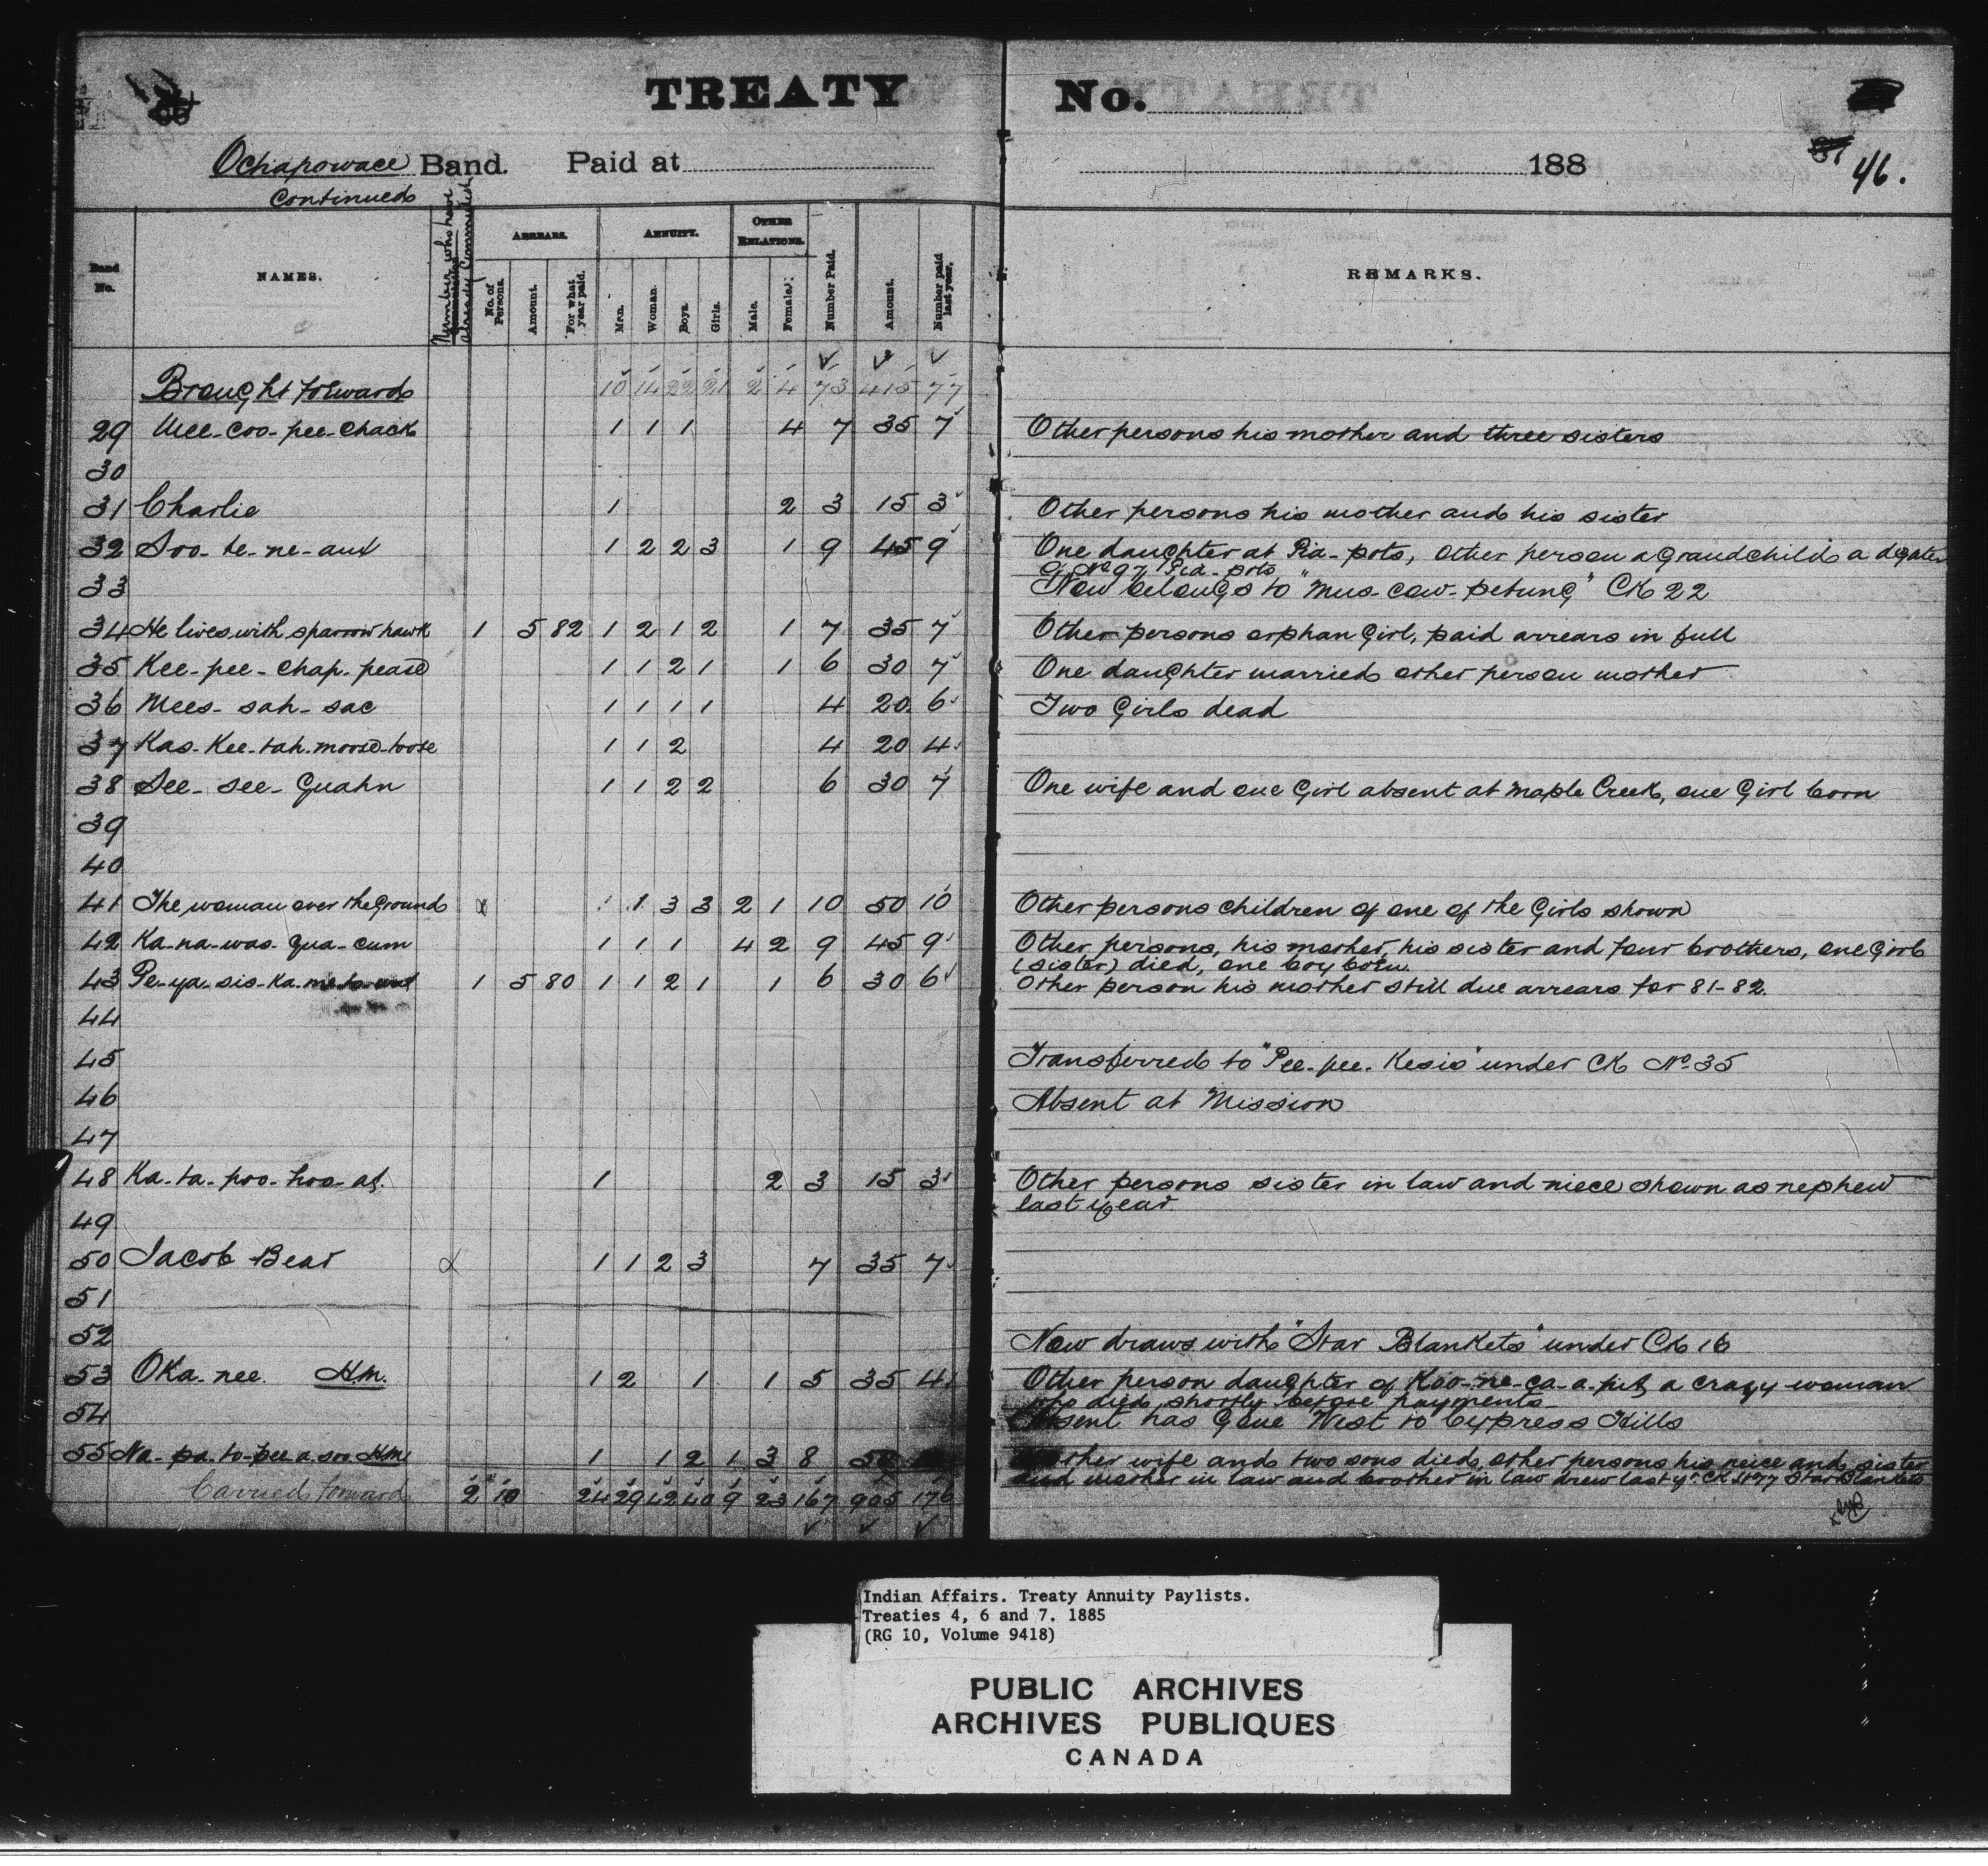 TREATY No.
46.
Ochapowace Band. Paid at 188
Continued
Band No. NAMES. Number who have already Commuted ARREARS. No. of Persons. Amount. For what year paid. ANNUITY. Man. Woman. Boys. Girls. OTHER RELATIONS. Male. Female. Number Paid. Amount. Number paid last year. REMARKS.
Brought forward 10 14 22 21 2 4 73 415 77
29 Mee-coo-pee-chack 1 1 1 4 7 35 7 Other persons his mother and three sisters
30
31 Charlie 1 2 3 15 3 Other persons his mother and his sister
32 Soo-te-ne-aux 1 2 2 3 1 9 45 9 One daughter at Pia-pots, other person a Grandchild a dghter
of No 97 Pia-pots
33 Now belongs to "Mus-cow-petung" CK 22
34 He lives with sparrow hawk 1 5 82 1 2 1 2 1 7 35 7 Other persons orphan Girl, paid arrears in full
35 Kee-pee-chap-pease 1 1 2 1 1 6 30 7 One daughter married other person mother
36 Mees-sah-sac 1 1 1 1 4 20 6 Two Girls dead
37 Kas-Kee-tah-moose-toose 1 1 2 4 20 4
38 See-see-Guahn 1 1 2 2 6 30 7 One wife and one Girl absent at Maple Creek, one Girl born
39
40
41 The woman over the Ground 1 1 3 3 2 1 10 50 10 Other persons children of one of the Girls shown
42 Ka-na-was-qua-cum 1 1 1 4 2 9 45 9 Other persons, his mother, his sister and four brothers, one Girl
(sister) died, one boy born.
43 Pe-ya-sis-ka 1 5 80 1 1 2 1 1 6 30 6 Other person his mother still due arrears for 81-82.
44
45 Transferred to "Pee-pee-Kesis" under CK No 35
46 Absent at Mission
47
48 Ka-ta-poo-hoo-at. 1 2 3 15 3 Other persons sister in law and niece shown as nephew
last year.
49
50 Jacob Bear 1 1 2 3 7 35 7
51
52 Now draws with "Star Blankets" under CK 16
53 Oka-nee. Hm. 1 2 1 1 5 35 4 Other person daughter of Koo-ne-ca-a-pit a crazy woman
who died shortly before payments
54 Absent has Gone West to Cypress Hills
55 Na-pa-to-pee-a-soo Hm 1 1 2 1 3 8 50 wife and two sons died, other persons his neice and sister
and mother in law and brother in law drew last yr. CK 77 Star Blankets
Carried forward 2 10 24 29 42 40 9 23 167 905 176
Indian Affairs. Treaty Annuity Paylists.
Treaties 4, 6 and 7. 1885
(RG 10, Volume 9418)
PUBLIC ARCHIVES
ARCHIVES PUBLIQUES
CANADA